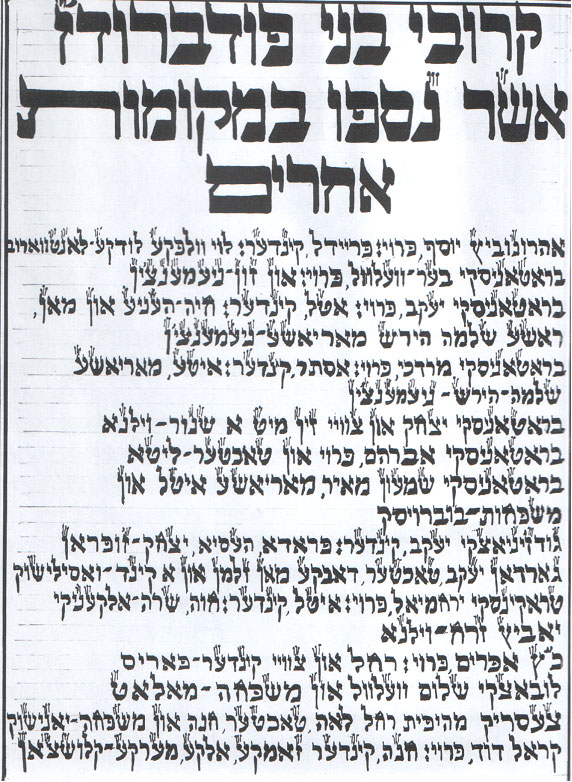 קרובי בני פודברודז
אשר נספו במקומות
אחרים
אהרונוביץ יוסף, פרוי: פריידל, קינדער: לוי וולפקע לודקע-לאנטווארים
בראטאנסקי בער-וועלוול, פרוי: און זון-ניעמענצין
בראטאניסקי יעקב, פרוי: אטל, קינדער: חיה-העניע און מאן,
ראשע שלמה הירש מאריאשע-ניעמענצין
בראטאניסקי מרדכי, פרוי: אסתר, קינדער: איטע, מאריאשע
שלמה-הירש-ניעמענצין
בראטאניסקי יצחק און צוויי זין מיט א שנור-וילנא
בראטאניסקי אברהם, פרוי און טאכטער-ליטא
בראטאניסקי שמעון מאיר, מאריאשע איטל און
משפחות-בוברויסק
גודזיניאצקי יעקב, קינדער: פראדא, העסיא, יצחק-זופראן
גארדאן יעקב, טאכטער, דאבקע מאן זלמן און א קינד-ואסילישוק
טראקינסקי ירחמיאל, פרוי: איטל, קינדער: חוה, שרה-אלקעניקי
יאביץ זרח-וילנא
כ״ץ אפרים, פרוי: רחל און צוויי קינדער-פאריס
לובאצקי שלום וועלוול און משפחה-מאלאט
צעסריק מהיפית רחל לאה, טאכטער, חנה און משפחה-יאנישוק
קראל דוד, פרוי: חנה, קינדער זיאמקע, אלקע, מערקע-קלושצאן